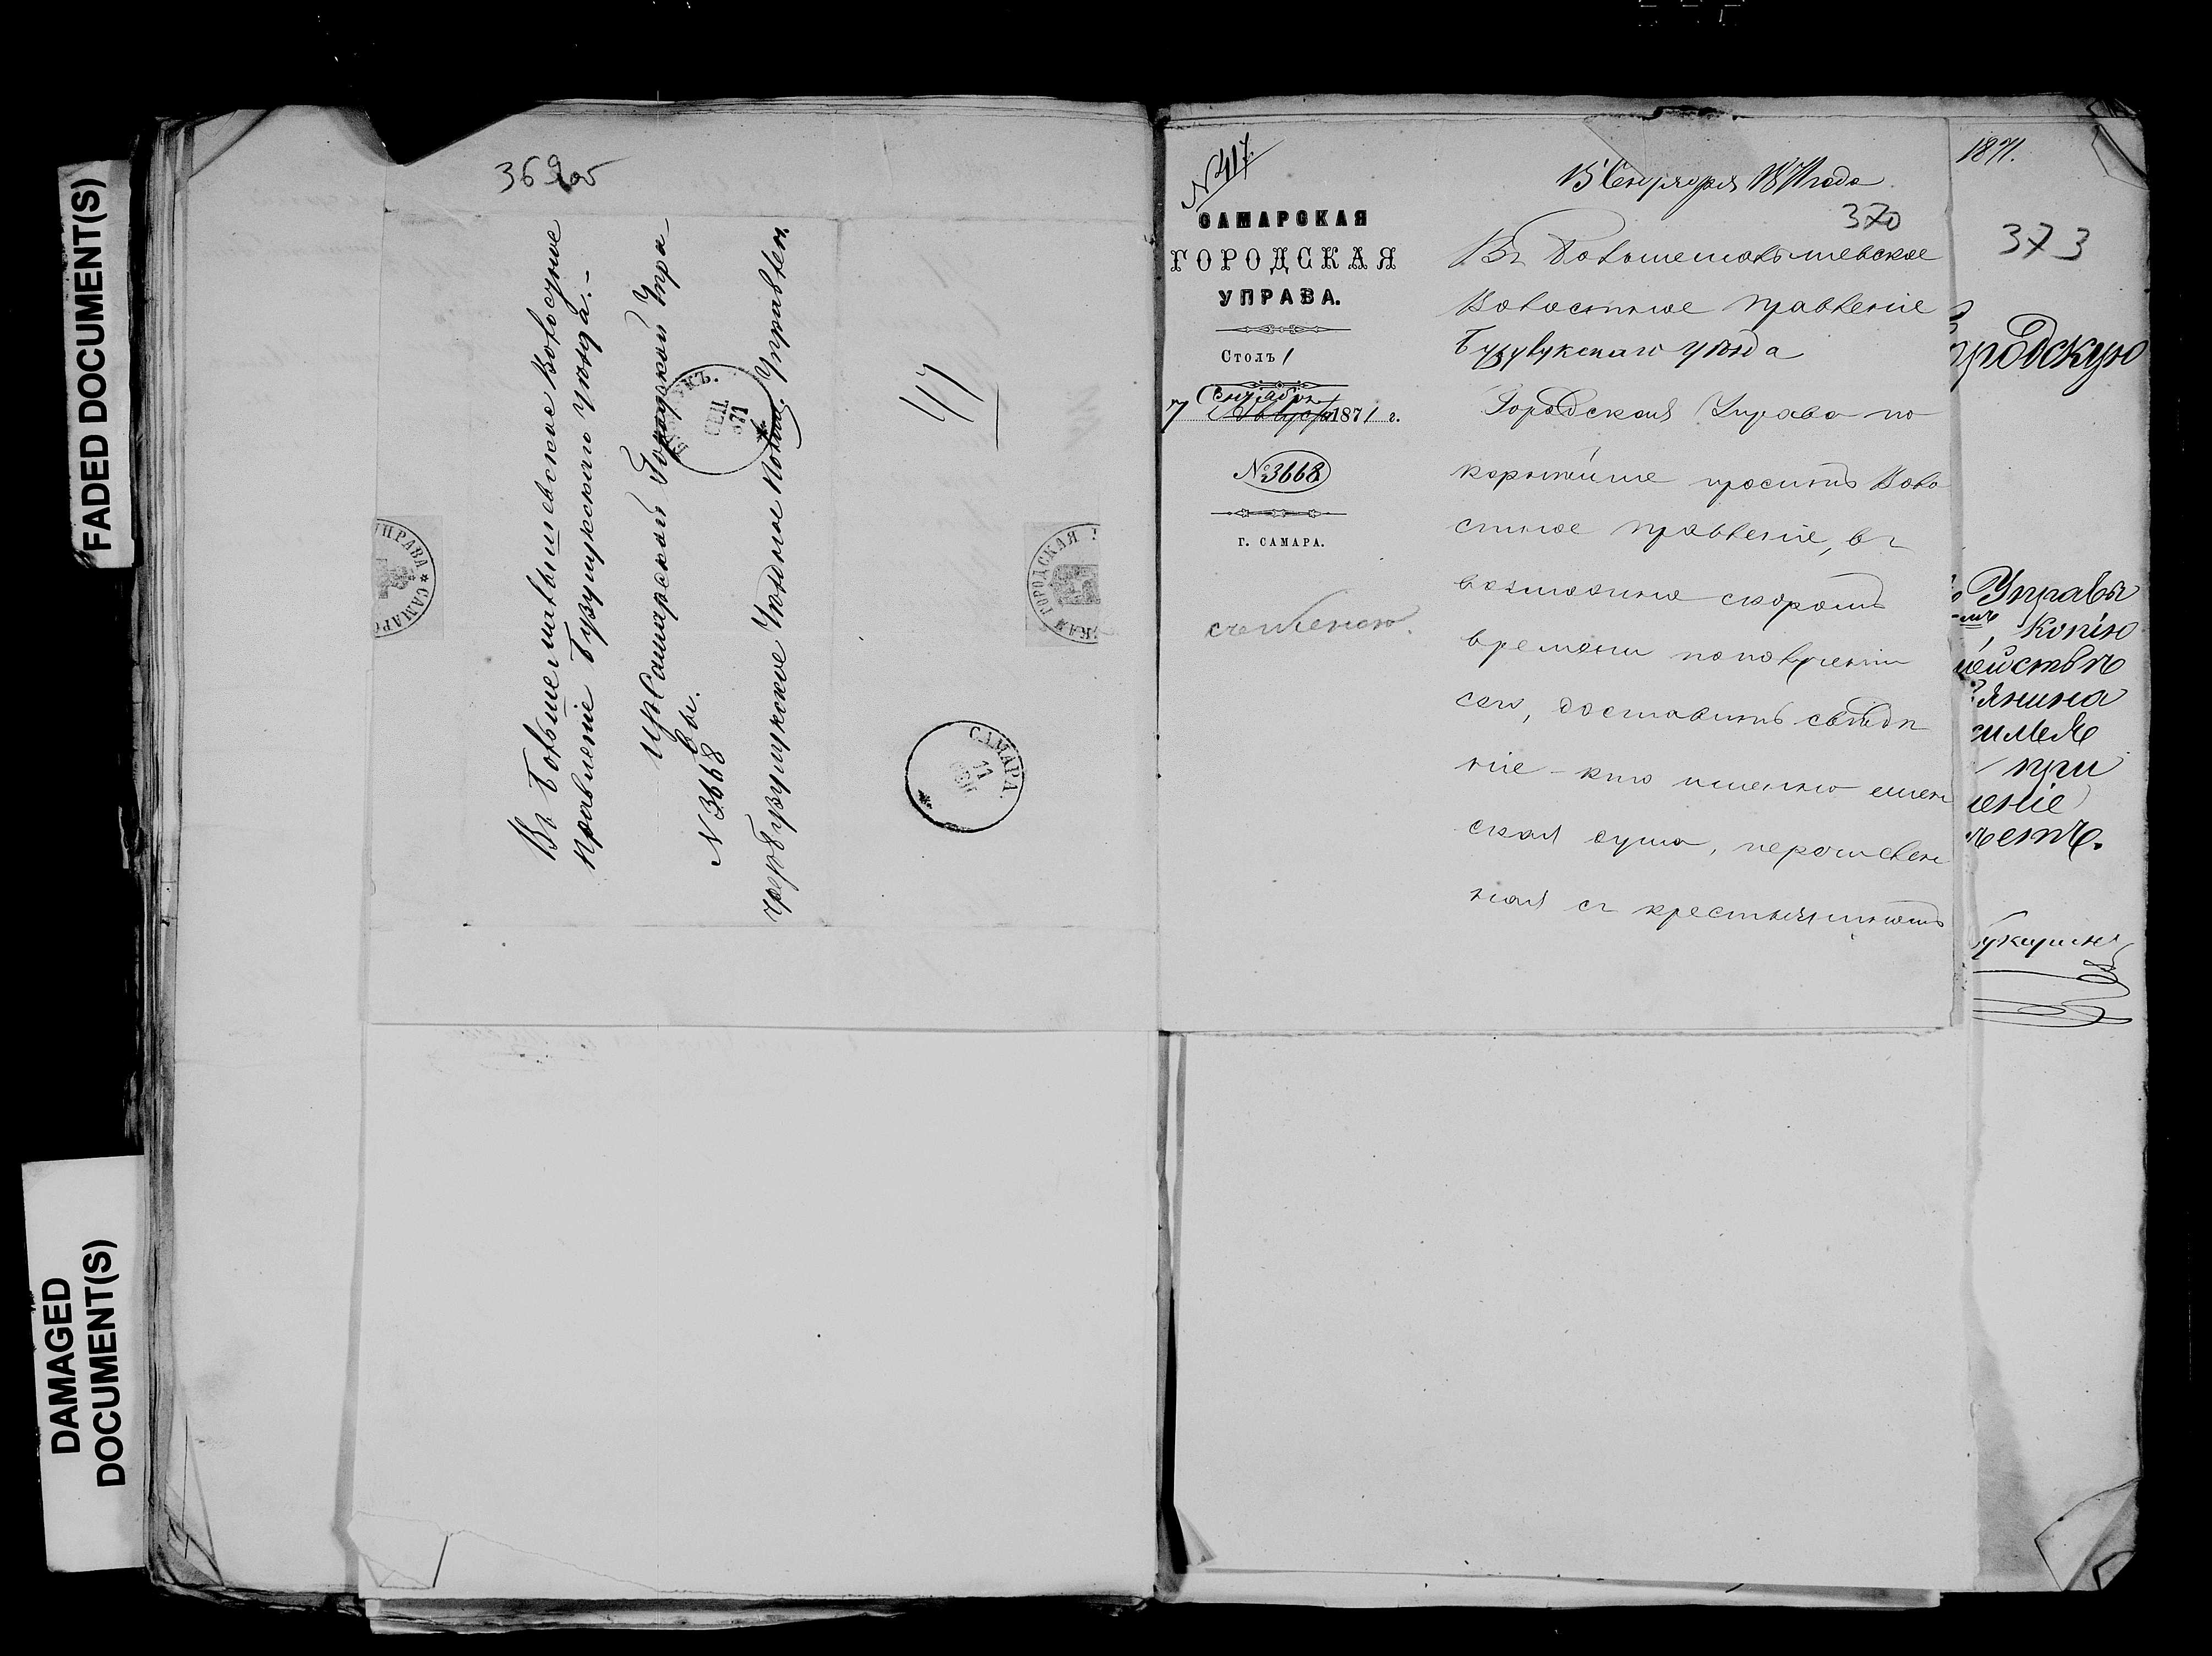 FADED DOCUMENT(S)
DAMAGED
DOCUMENT(S)
369об
Въ Больше малышевское Волостное
Правленiе Бузулукскаго уѣзда.-
изъ Самарской Городской Упра
вы.
N 3668
чрезъ Бузулукское Уѣздное Полиц. Управлен.
УПРАВА * САМАРС
ГОРОДСКАЯ
СЕН
1871
417
САМАРА.
11
СЕН
N 417.
САМАРСКАЯ
ГОРОДСКАЯ
УПРАВА.
Столъ 1
Сентября
7 Августа 1871 г.
№ 3668
Г. САМАРА.
15 Сентября 1871 года
370
Въ Большемалышевское
Волостное Правленiе
Бузулукскаго уѣзда
Городская Управа по
корнѣйше проситъ Воло
стное Правленiе, въ
возможно скоромъ
времени по полученiи
сего, доставить свѣдѣ
нiе - кто именно
ская душа, перечислен
ная съ крестьяниномъ
1871.
373
ородскую
Управы
копiю
мействѣ
янина
при
ченiе